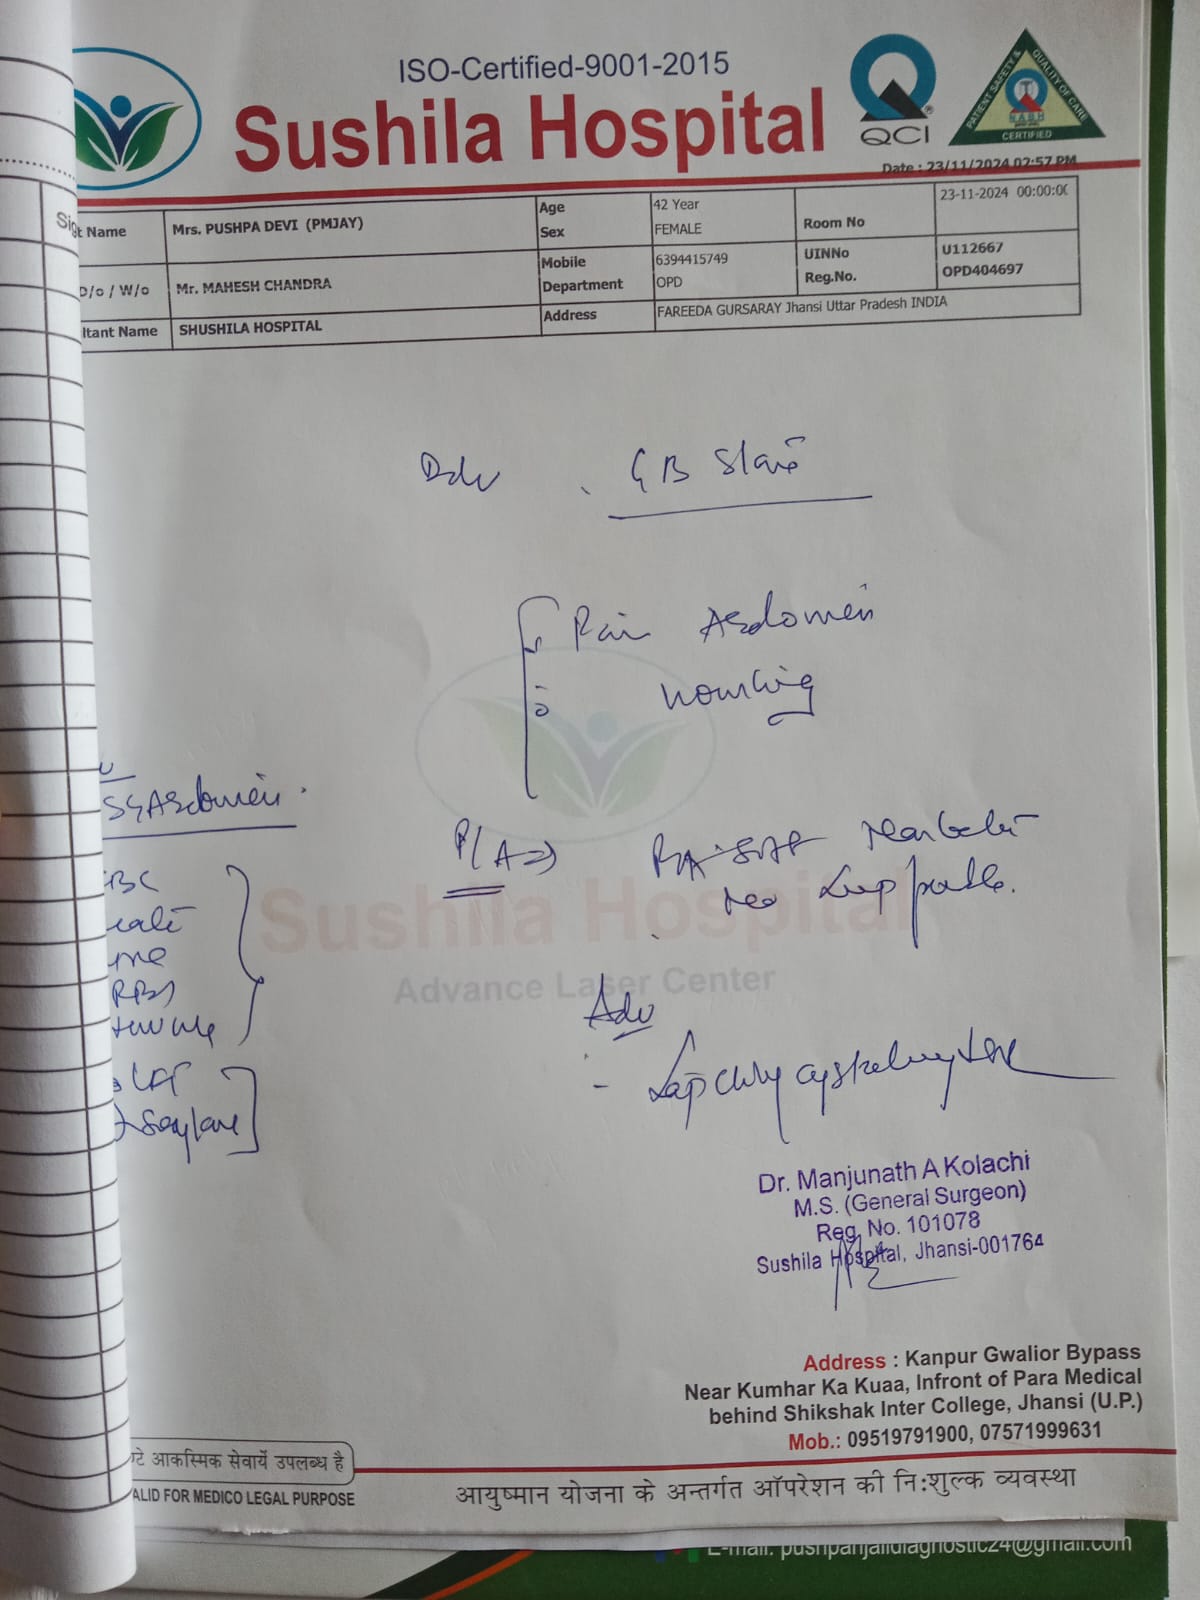 ISO-Certified-9001-2015
Sushila Hospital
QCI
PATIENT SAFETY & QUALITY OF CARE
NABH
CERTIFIED
Date : 23/11/2024 02:57 PM
t Name Mrs. PUSHPA DEVI (PMJAY) Age 42 Year Room No 23-11-2024 00:00:00
Sex FEMALE
D/o / W/o Mr. MAHESH CHANDRA Mobile 6394415749 UINNo U112667
Department OPD Reg.No. OPD404697
ltant Name SHUSHILA HOSPITAL Address FAREEDA GURSARAY Jhansi Uttar Pradesh INDIA
Sig
GB Stone
Pain Abdomen
Vomiting
SG Abdomen
P/A
CBC
RBS
LFT
Adv
- Lap
Sushila Hospital
Advance Laser Center
Dr. Manjunath A Kolachi
M.S. (General Surgeon)
Reg. No. 101078
Sushila Hospital, Jhansi-001764
Address : Kanpur Gwalior Bypass
Near Kumhar Ka Kuaa, Infront of Para Medical
behind Shikshak Inter College, Jhansi (U.P.)
Mob.: 09519791900, 07571999631
टे आकस्मिक सेवायें उपलब्ध है
ALID FOR MEDICO LEGAL PURPOSE
आयुष्मान योजना के अन्तर्गत ऑपरेशन की नि:शुल्क व्यवस्था
E-mail: pushpanjalidiagnostic24@gmail.com